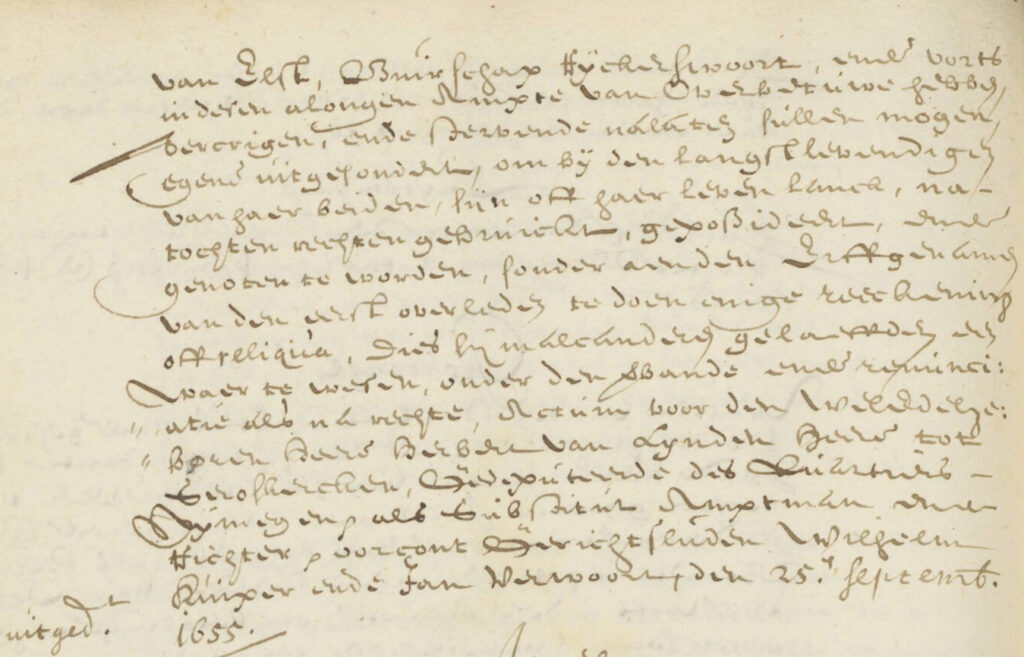 van Elst, Buirschap Ryckerswoort, ende vorts
indesen alongen Ampte van Overbetuwe hebben,
vercrigen, ende stervende nalaten sullen mogen,
egene uitgesondert, om by den langstlevendigen
van haer beiden, sijn off haer leven lanck, na-
tochten rechten gebruickt, gepossideert, ende
genoten te worden, sonder aenden Erffgenamen
van den eerst overleden te doen enige reeckening
off reliqua, Dies sy malcanderen gelaeffden een
waer te wesen, onder den bande ende renunci:
atie als na rechte, Actum voor den WelEdelge:
boren Heere Herbert van Lynden Heere tot
Gedeputeerde des Quartiers
Nymegen, als Substitut Amptman ende
Richter, voorts Gerichtsluden Wilhelm
Kuiper ende Jan Verwoort, den 25. Septemb.
uitged.t 1655.